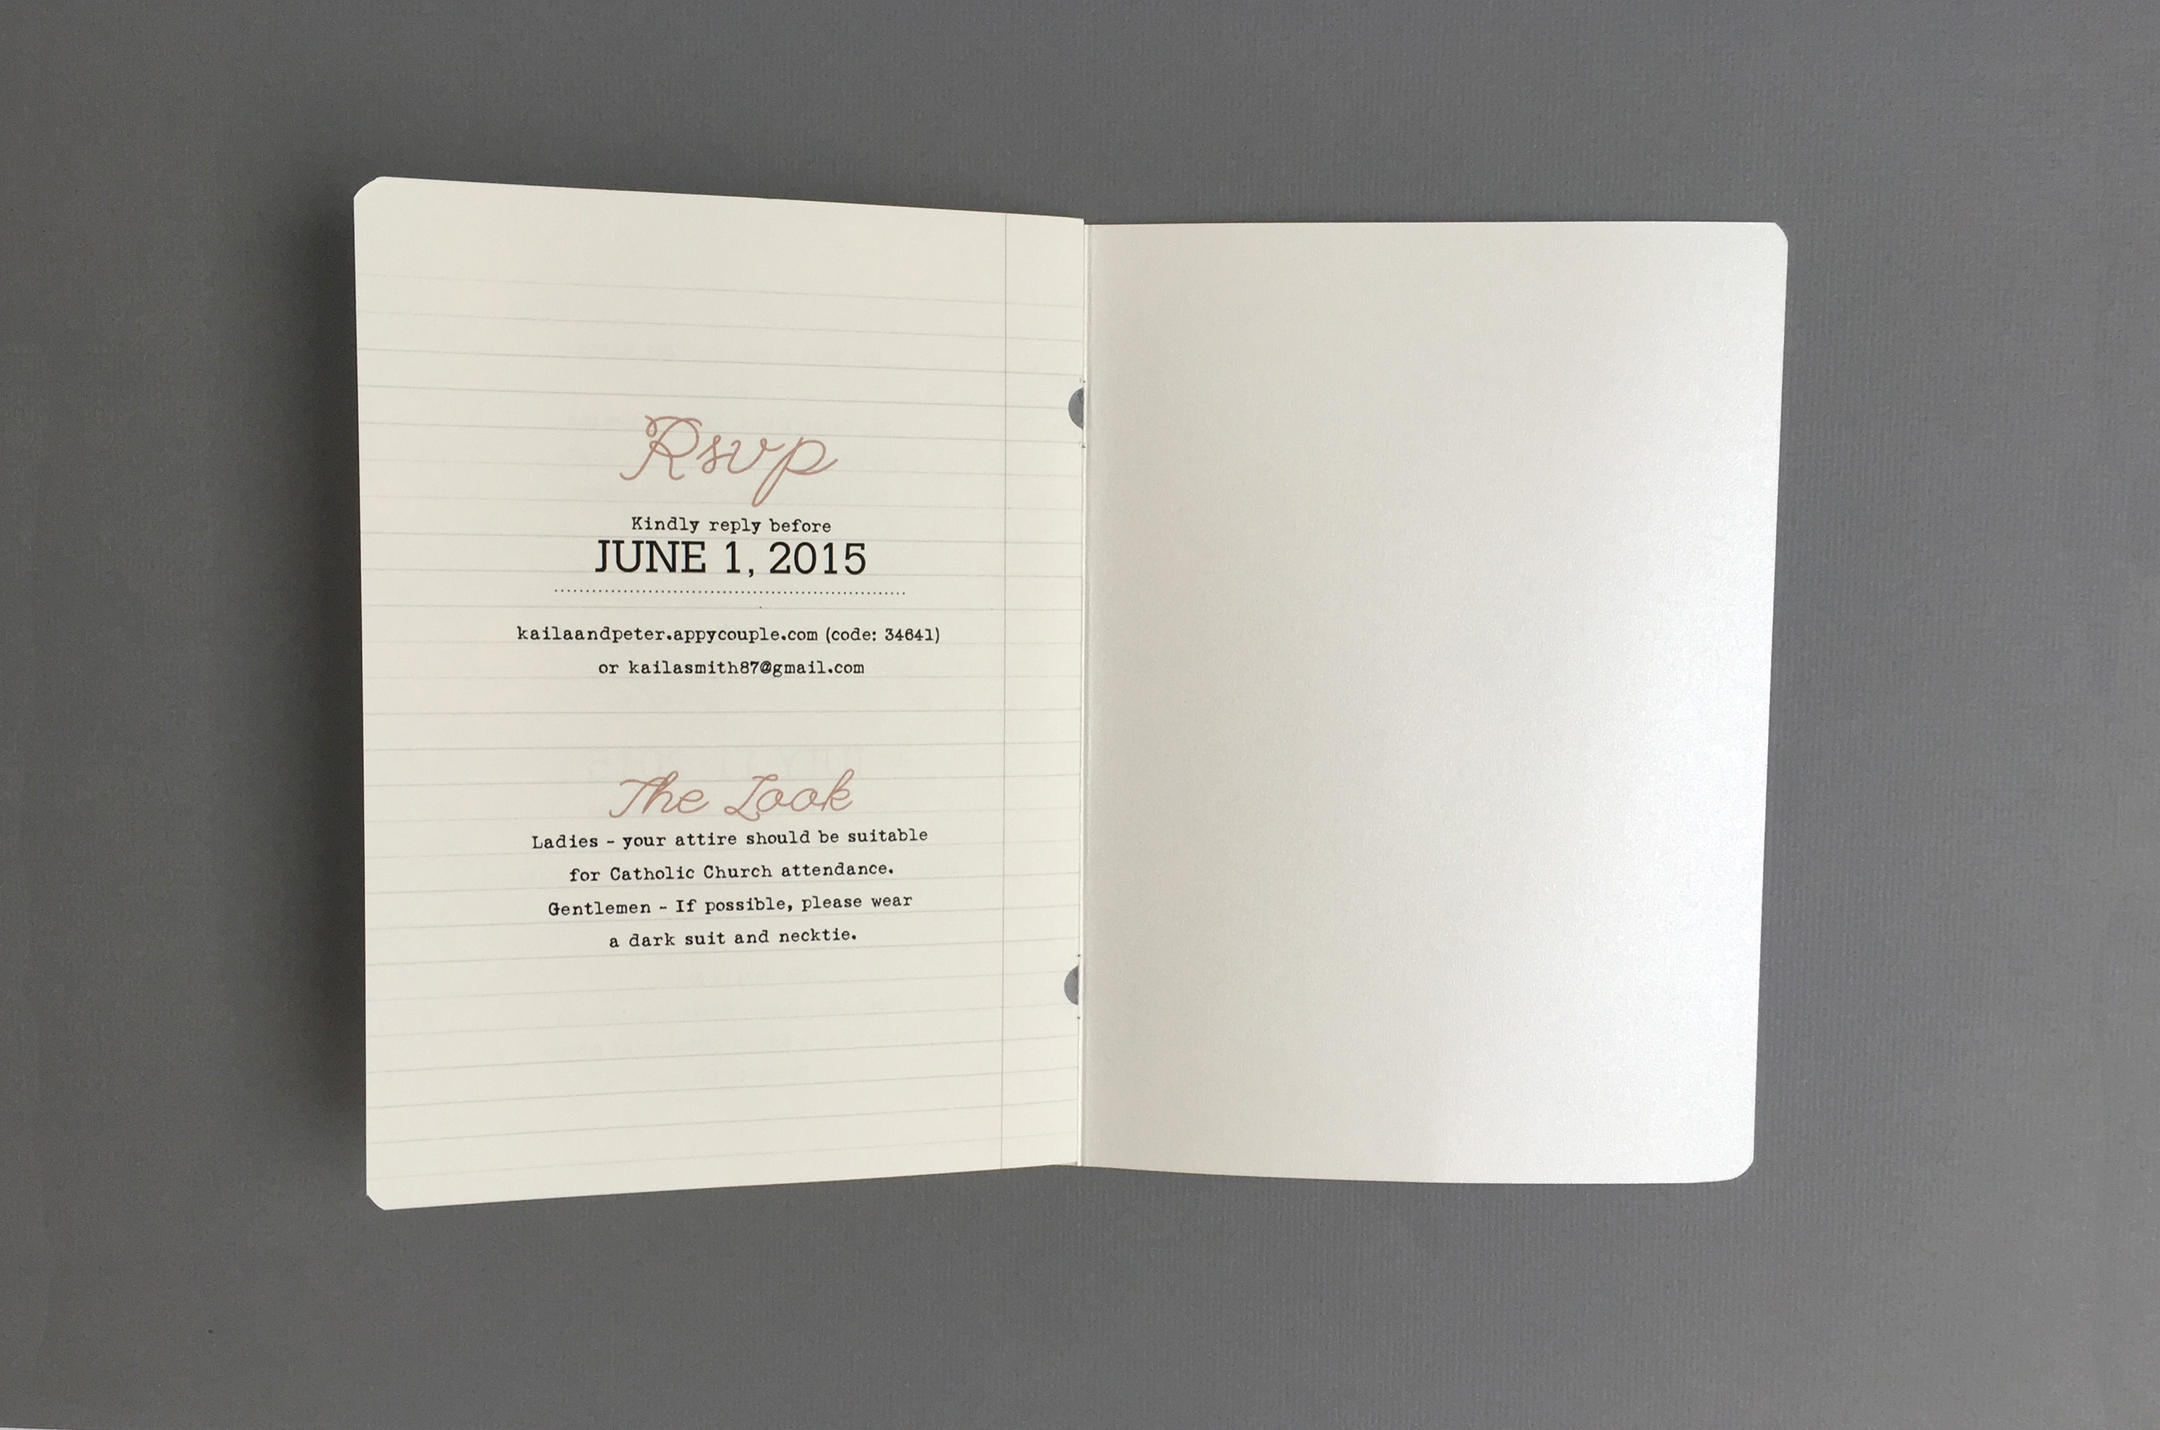 Rsvp
Kindly reply before
JUNE 1, 2015
kailaandpeter.appycouple.com (code: 34641)
or kailasmith87@gmail.com
The Look
Ladies - your attire should be suitable
for Catholic Church attendance.
Gentlemen - If possible, please wear
a dark suit and necktie.